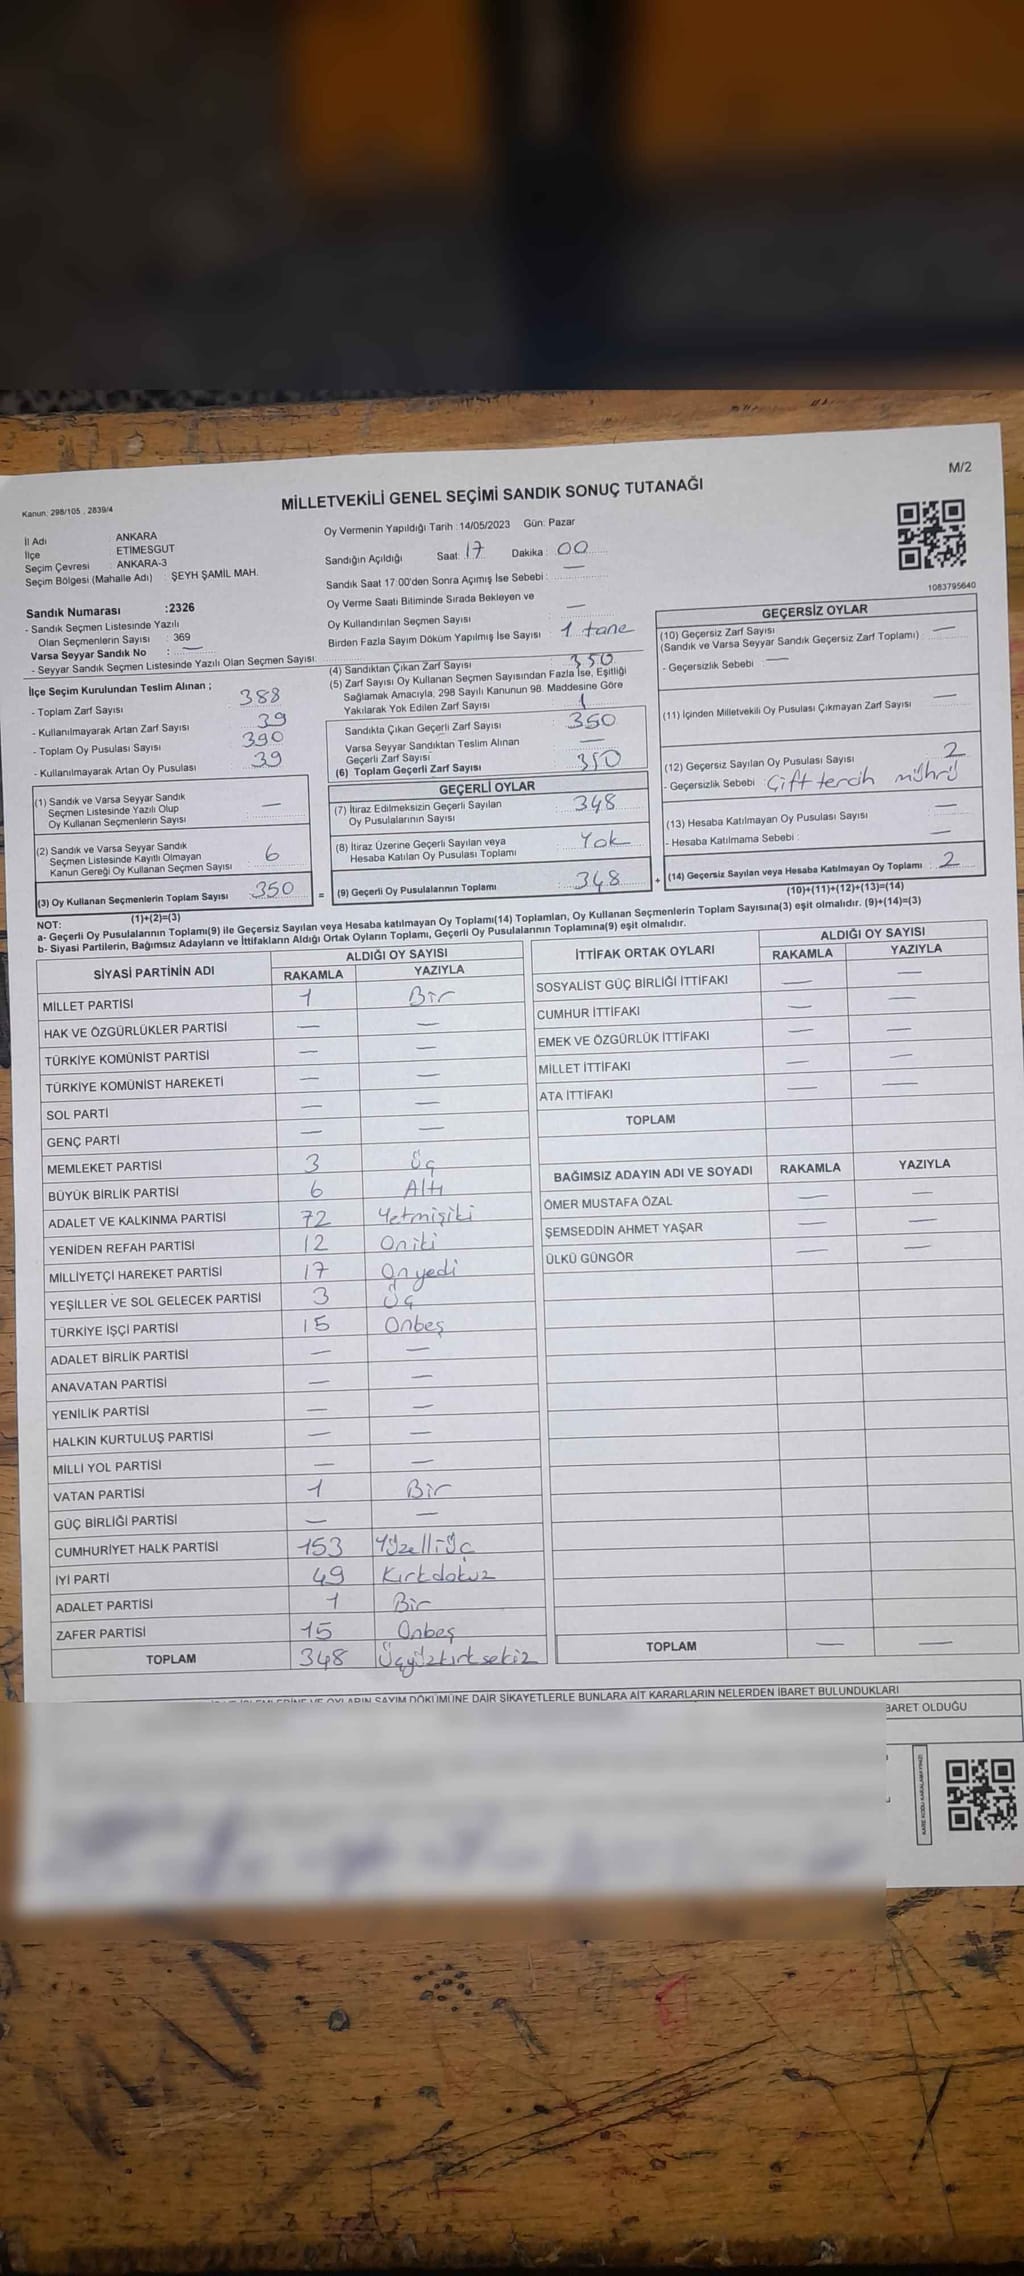 M/2
Kanun: 298/105 , 2839/4
MİLLETVEKİLİ GENEL SEÇİMİ SANDIK SONUÇ TUTANAĞI
İl Adı : ANKARA
İlçe : ETİMESGUT
Seçim Çevresi : ANKARA-3
Seçim Bölgesi (Mahalle Adı) : ŞEYH ŞAMİL MAH.
Sandık Numarası :2326
- Sandık Seçmen Listesinde Yazılı
Olan Seçmenlerin Sayısı : 369
Varsa Seyyar Sandık No : —
- Seyyar Sandık Seçmen Listesinde Yazılı Olan Seçmen Sayısı:
Oy Vermenin Yapıldığı Tarih :14/05/2023 Gün: Pazar
Sandığın Açıldığı Saat: 17 Dakika : 00
Sandık Saat 17:00'den Sonra Açımış İse Sebebi : —
Oy Verme Saati Bitiminde Sırada Bekleyen ve
Oy Kullandırılan Seçmen Sayısı : —
Birden Fazla Sayım Döküm Yapılmış İse Sayısı : 1 tane
1083795640
İlçe Seçim Kurulundan Teslim Alınan ;
- Toplam Zarf Sayısı : 388
- Kullanılmayarak Artan Zarf Sayısı : 39
- Toplam Oy Pusulası Sayısı : 390
- Kullanılmayarak Artan Oy Pusulası : 39
(1) Sandık ve Varsa Seyyar Sandık
Seçmen Listesinde Yazılı Olup
Oy Kullanan Seçmenlerin Sayısı : —
(2) Sandık ve Varsa Seyyar Sandık
Seçmen Listesinde Kayıtlı Olmayan
Kanun Gereği Oy Kullanan Seçmen Sayısı : 6
(3) Oy Kullanan Seçmenlerin Toplam Sayısı : 350 =
(1)+(2)=(3)
(4) Sandıktan Çıkan Zarf Sayısı : 350
(5) Zarf Sayısı Oy Kullanan Seçmen Sayısından Fazla İse, Eşitliği
Sağlamak Amacıyla, 298 Sayılı Kanunun 98. Maddesine Göre
Yakılarak Yok Edilen Zarf Sayısı : 1
Sandıkta Çıkan Geçerli Zarf Sayısı : 350
Varsa Seyyar Sandıktan Teslim Alınan
Geçerli Zarf Sayısı : —
(6) Toplam Geçerli Zarf Sayısı : 350
GEÇERLİ OYLAR
(7) İtiraz Edilmeksizin Geçerli Sayılan
Oy Pusulalarının Sayısı : 348
(8) İtiraz Üzerine Geçerli Sayılan veya
Hesaba Katılan Oy Pusulası Toplamı : Yok
(9) Geçerli Oy Pusulalarının Toplamı : 348 +
GEÇERSİZ OYLAR
(10) Geçersiz Zarf Sayısı : —
(Sandık ve Varsa Seyyar Sandık Geçersiz Zarf Toplamı)
- Geçersizlik Sebebi : —
(11) İçinden Milletvekili Oy Pusulası Çıkmayan Zarf Sayısı : —
(12) Geçersiz Sayılan Oy Pusulası Sayısı : 2
- Geçersizlik Sebebi : Çift tercih mührü
(13) Hesaba Katılmayan Oy Pusulası Sayısı : —
- Hesaba Katılmama Sebebi : —
(14) Geçersiz Sayılan veya Hesaba Katılmayan Oy Toplamı : 2
(10)+(11)+(12)+(13)=(14)
NOT:
a- Geçerli Oy Pusulalarının Toplamı(9) ile Geçersiz Sayılan veya Hesaba katılmayan Oy Toplamı(14) Toplamları, Oy Kullanan Seçmenlerin Toplam Sayısına(3) eşit olmalıdır. (9)+(14)=(3)
b- Siyasi Partilerin, Bağımsız Adayların ve İttifakların Aldığı Ortak Oyların Toplamı, Geçerli Oy Pusulalarının Toplamına(9) eşit olmalıdır.
SİYASİ PARTİNİN ADI ALDIĞI OY SAYISI
RAKAMLA YAZIYLA
MİLLET PARTİSİ 1 Bir
HAK VE ÖZGÜRLÜKLER PARTİSİ — —
TÜRKİYE KOMÜNİST PARTİSİ — —
TÜRKİYE KOMÜNİST HAREKETİ — —
SOL PARTİ — —
GENÇ PARTİ — —
MEMLEKET PARTİSİ 3 Üç
BÜYÜK BİRLİK PARTİSİ 6 Altı
ADALET VE KALKINMA PARTİSİ 72 Yetmişiki
YENİDEN REFAH PARTİSİ 12 Oniki
MİLLİYETÇİ HAREKET PARTİSİ 17 Onyedi
YEŞİLLER VE SOL GELECEK PARTİSİ 3 Üç
TÜRKİYE İŞÇİ PARTİSİ 15 Onbeş
ADALET BİRLİK PARTİSİ — —
ANAVATAN PARTİSİ — —
YENİLİK PARTİSİ — —
HALKIN KURTULUŞ PARTİSİ — —
MİLLİ YOL PARTİSİ — —
VATAN PARTİSİ 1 Bir
GÜÇ BİRLİĞİ PARTİSİ — —
CUMHURİYET HALK PARTİSİ 153 Yüzelliüç
İYİ PARTİ 49 Kırkdokuz
ADALET PARTİSİ 1 Bir
ZAFER PARTİSİ 15 Onbeş
TOPLAM 348 Üçyüzkırksekiz
İTTİFAK ORTAK OYLARI ALDIĞI OY SAYISI
RAKAMLA YAZIYLA
SOSYALİST GÜÇ BİRLİĞİ İTTİFAKI — —
CUMHUR İTTİFAKI — —
EMEK VE ÖZGÜRLÜK İTTİFAKI — —
MİLLET İTTİFAKI — —
ATA İTTİFAKI — —
TOPLAM
BAĞIMSIZ ADAYIN ADI VE SOYADI RAKAMLA YAZIYLA
ÖMER MUSTAFA ÖZAL — —
ŞEMSEDDİN AHMET YAŞAR — —
ÜLKÜ GÜNGÖR — —
TOPLAM — —
VE OYLARIN SAYIM DÖKÜMÜNE DAİR ŞİKAYETLERLE BUNLARA AİT KARARLARIN NELERDEN İBARET BULUNDUKLARI
BARET OLDUĞU
KARE KODU KARALAMAYINIZ!